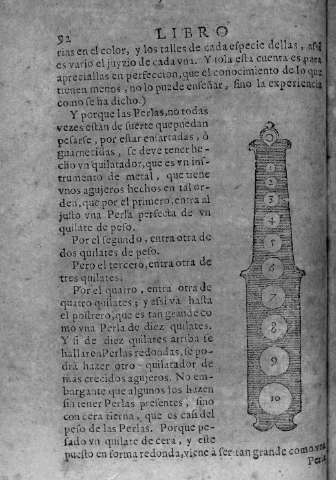 92 LIBRO
rias en el color, y los talles de cada especie dellas, assi
es vario el juyzio de cada vna. Y tola esta cuenta es para
apreciallas en perfeccion, que el conocimiento de lo que
tienen menos, no lo puede enseñar, sino la experiencia
como se ha dicho.)
Y porque las Perlas, no todas
vezes estàn de suerte que puedan
pesarse, por estar ensartadas, ò
guarnecidas, se deve tener he-
cho vn quilatador, que es vn ins-
trumento de metal, que tiene
vnos agujeros hechos en tal or-
den, que por el primero, entra al
justo vna Perla perfecta de vn
quilate de peso.
Por el segundo, entra otra de
dos quilates de peso.
Pero el tercero, entra otra de
tres quilates.
Por el quatro, entra otra de
quatro quilates; y assi và hasta
el postrero, que es tan grande co-
mo vna Perla de diez quilates.
Y si de diez quilates arriba se
hallaren Perlas redondas, se po-
drà hazer otro quilatador de
mas crecidos agujeros. No em-
bargante que algunos los hazen
sin tener Perlas presentes, sino
con cera tierna, que es casi del
peso de las Perlas. Porque pe-
sado vn quilate de cera, y este
puesto en forma redonda, viene à ser tan grande como vna
Perla
1
2
3
4
5
6
7
8
9
10